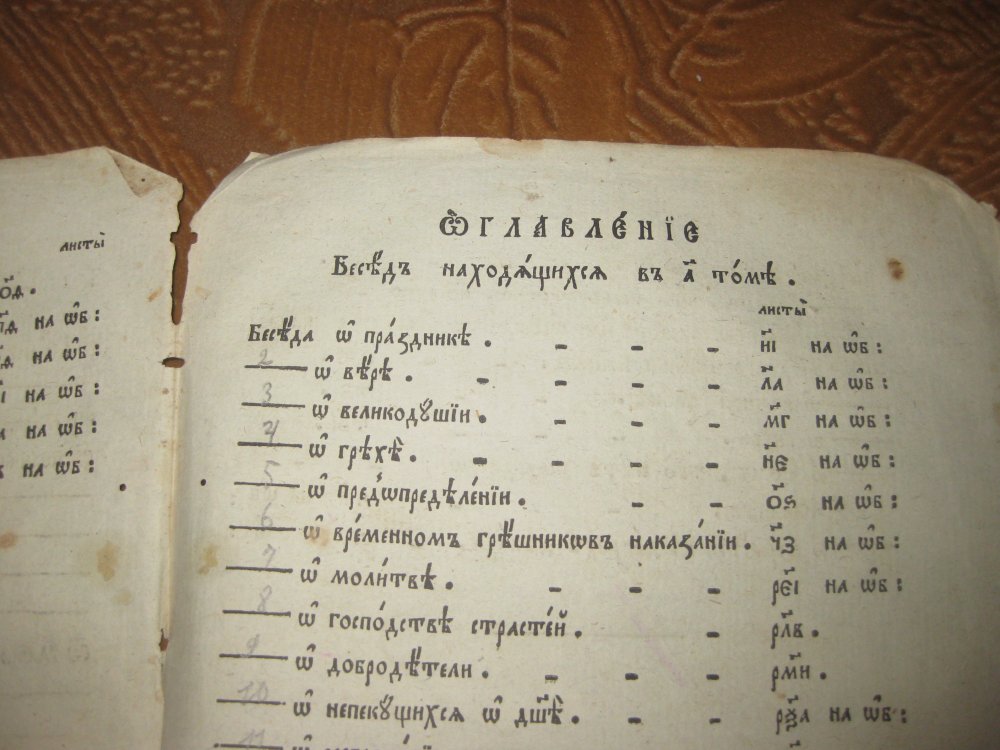 листы̀
на ѡ҆б:
на ѡ҆б:
на ѡ҆б:
на ѡ҆б:
на ѡ҆б:
Ѡ҆ГЛАВЛЕ́НЇЕ
Бесѣ́дъ находѧ́щихсѧ въ а҃ то́мѣ.
листы̀
Бесѣ́да ѡ҆ пра́здникѣ. - - - н҃і на ѡ҆б:
2 ѡ҆ вѣ́рѣ. - - - - л҃а на ѡ҆б:
3 ѡ҆ великодꙋ́шїи. - - - м҃г на ѡ҆б:
4 ѡ҆ грѣхѣ̀. - - - - н҃є на ѡ҆б:
5 ѡ҆ пред̾ѡпредѣле́нїи. - - о҃ѕ на ѡ҆б:
6 ѡ҆ вре́менномъ грѣ́шникѡвъ наказа́нїи. ч҃з на ѡ҆б:
7 ѡ҆ моли́твѣ. - - - рє҃і на ѡ҆б:
8 ѡ҆ госпо́дствѣ страсте́й. - рл҃в.
9 ѡ҆ добродѣ́тели. - - - рм҃и.
10 ѡ҆ непекꙋ́щихсѧ ѡ҆ дш҃ѣ̀. - - рѯ҃а на ѡ҆б:
11